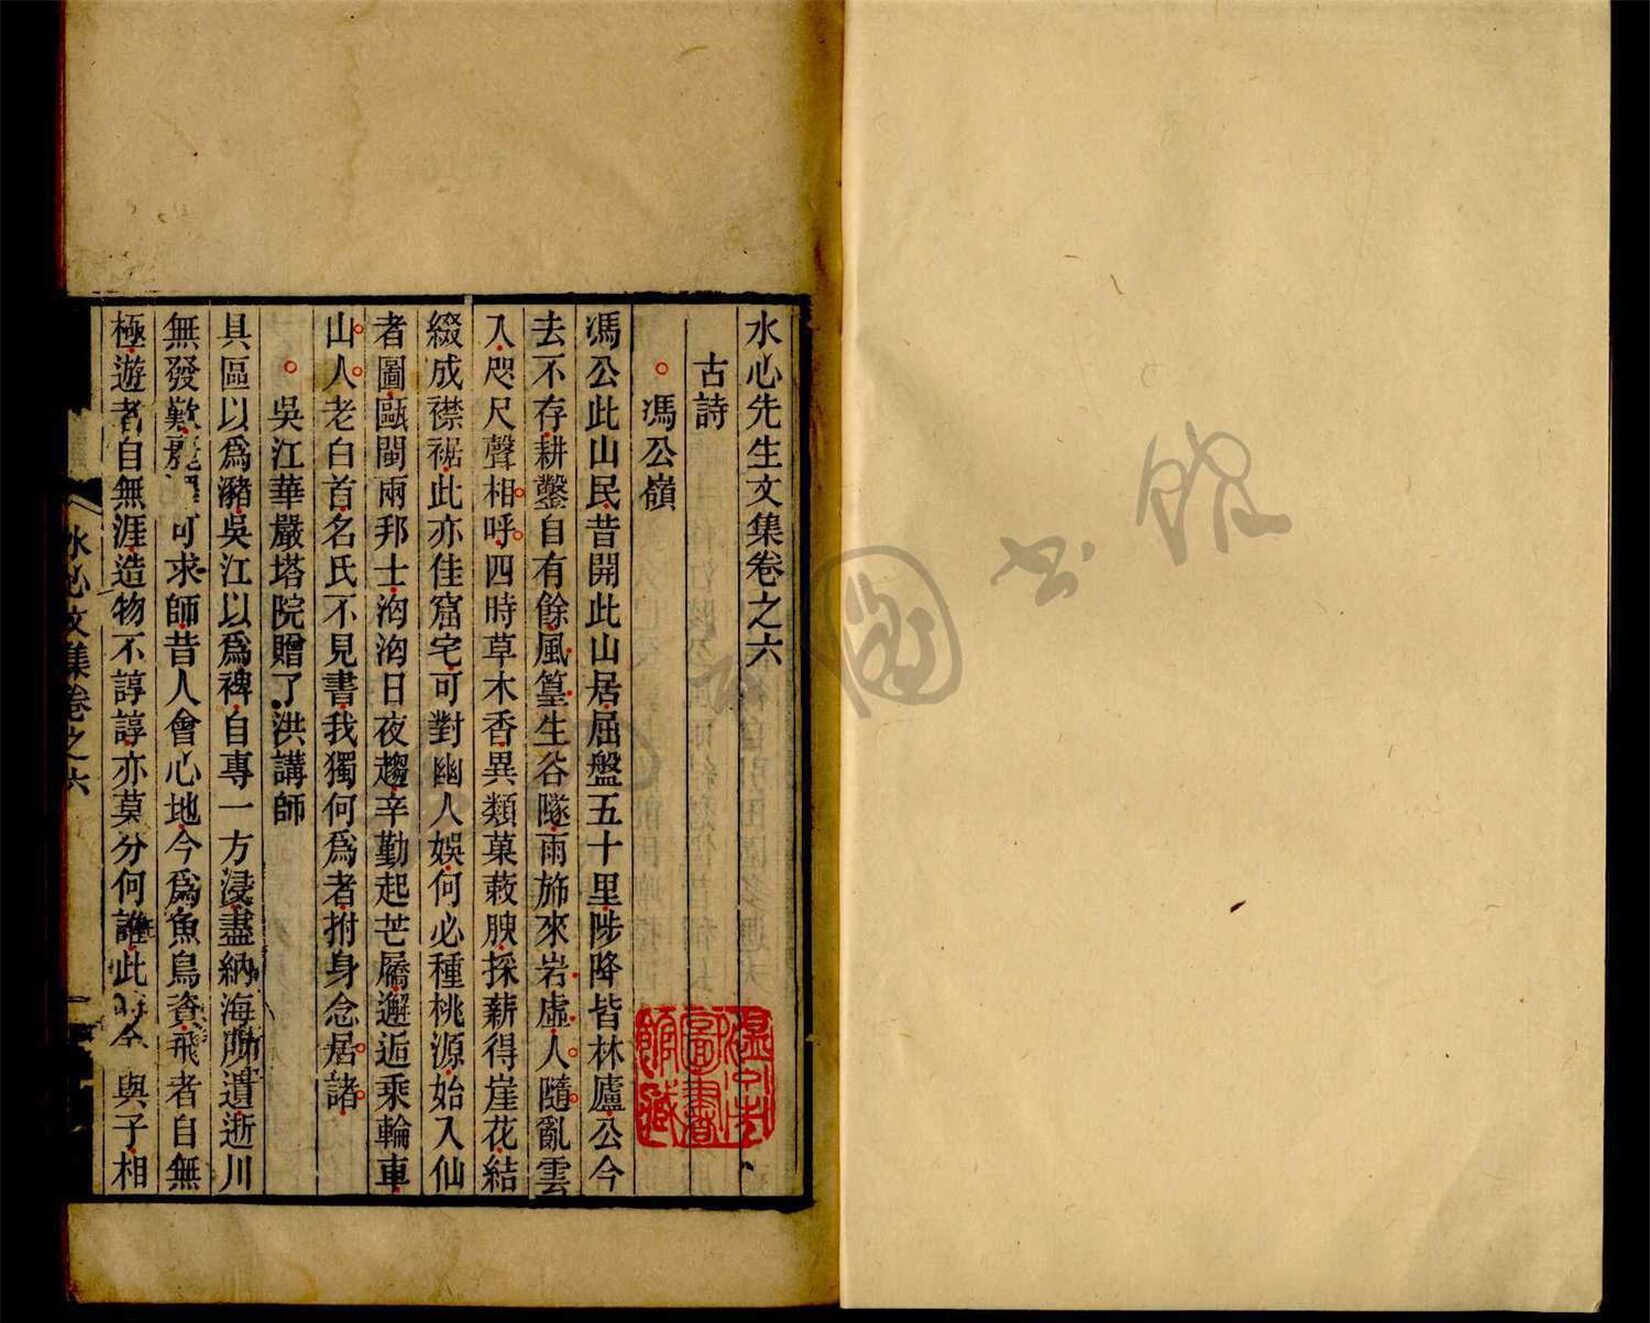 水心先生文集卷之六
古詩
馮公嶺
馮公此山民昔開此山居屈盤五十里陟降皆林廬公今
去不存耕鑿自有餘風篁生谷隧雨旆來岩虛人隨亂雲
入咫尺聲相呼四時草木香異類菓蓛腴採薪得崖花結
綴成襟裾此亦佳窟宅可對幽人娛何必種桃源始入仙
者圖甌閩兩邦士洶洶日夜趨辛勤起芒屩邂逅乘輪車
山人老白首名氏不見書我獨何為者拊身念居諸
吳江華嚴塔院贈了洪講師
具區以爲瀦吳江以爲裨自專一方浸盡納海師遺逝川
無發歎 可求師昔人會心地今爲魚鳥資飛者自無
極遊者自無涯造物不諄諄亦莫分何誰此 與子相
水心文集卷之六
圖書館
溫州市圖書館藏